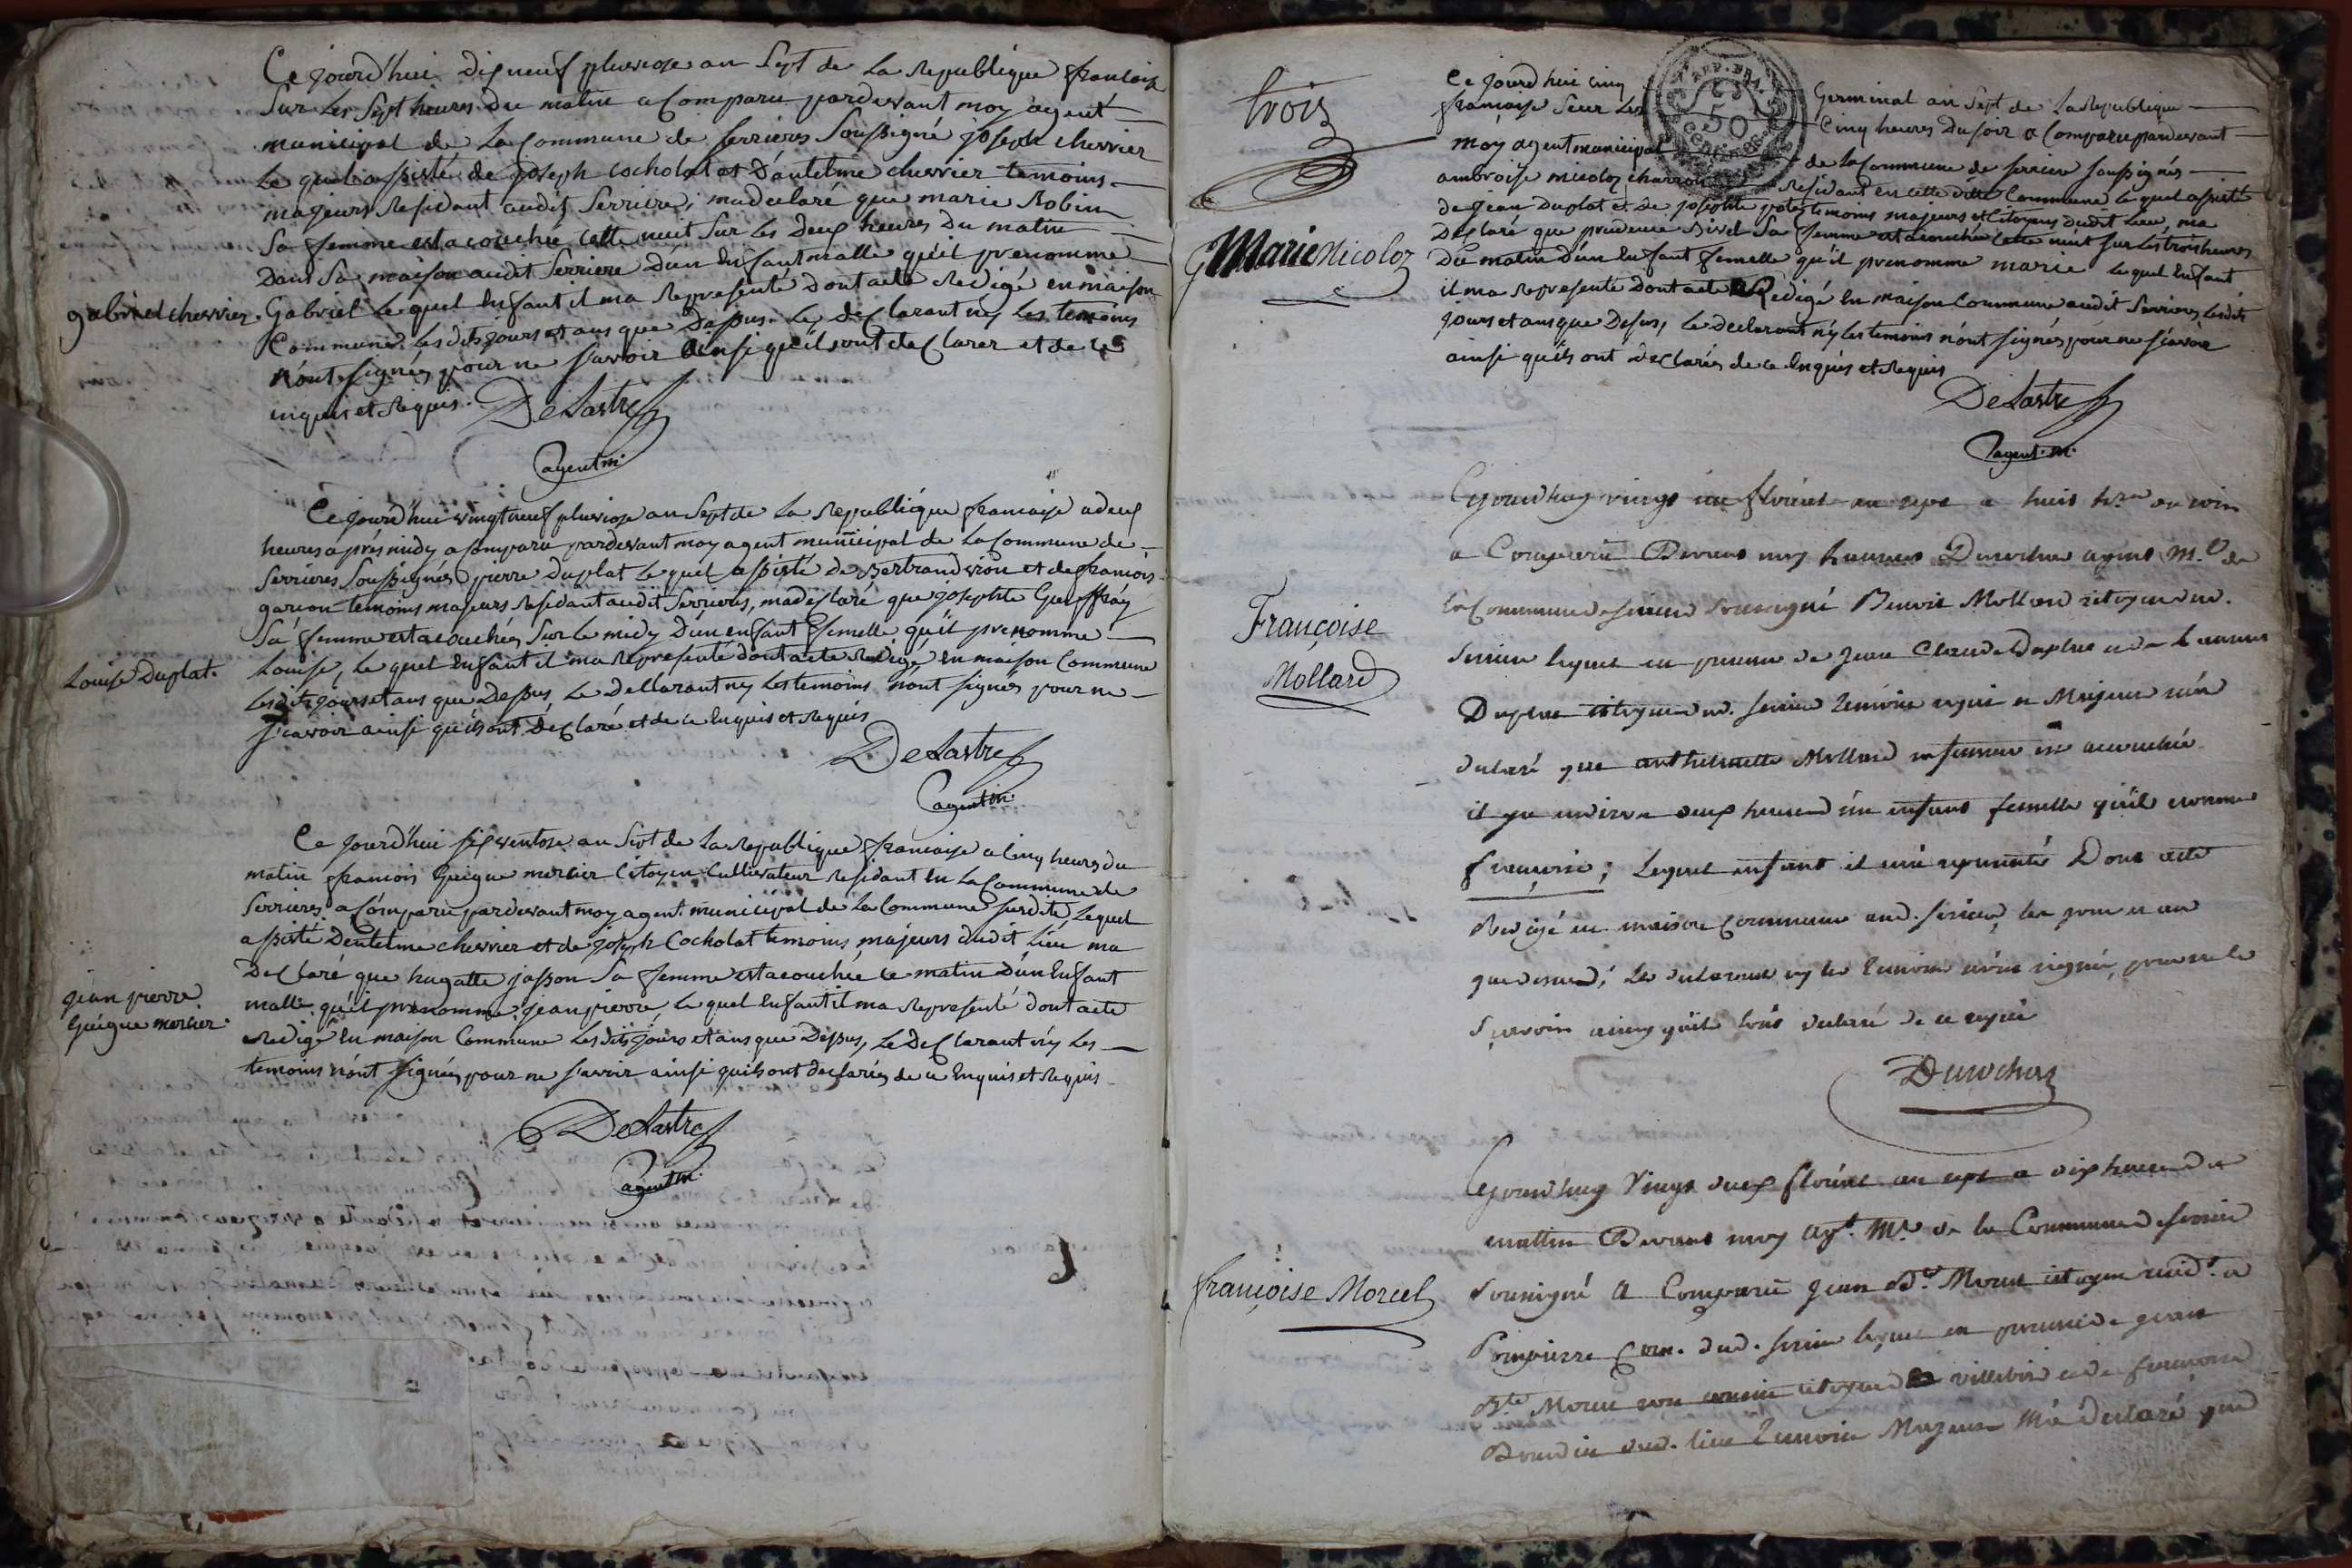 Ce jourd'hui dix neuf pluviose an sept de la Republique francoise
sur les sept heures du matin a comparu pardevant moy agent
municipal de la commune de serrieres soussigné joseph chevrier
le quel assisté de joseph cocholat et d'antelme chevrier temoins
majeurs residant audit serriere, ma declaré que marie Robin
sa femme est acouchée cette nuit sur les deux heures du matin
dans sa maison audit serriere d'un enfant malle qu'il prenomme
gabriel chevrier.
Gabriel le quel enfant il ma represente dont acte redigé en maison
commune lesdits jours et ans que dessus. le declarant ny les temoins
n'ont signés pour ne savoir ainsi qu'ils ont declarer et de ce
inquis et requis. DeLastre
agent m.
Ce jourd'hui vingt neuf pluviose an sept de la Republique francaise a deux
heures aprés midy a comparu pardevant moy agent municipal de la commune de
serrieres soussignés pierre duplat le quel assisté de Bertrand vion et de francois
garion temoins majeurs residant audit serrieres, ma declaré que josephte Gueffray
sa femme est acouchée, sur le midy d'un enfant femelle qu'il prenomme
Louise Duplat.
Louise, le quel enfant il ma represente dont acte redigé en maison commune
lesdits jours et ans que dessus le declarant ny les temoins n'ont signés pour ne
scavoir ainsi qu'ils ont declaré et de ce enquis et requis
DeLastre
agent m.
Ce jourd'hui six ventose an sept de la Republique francaise a cinq heures du
matin francois guigue mercier citoyen cultivateur residant en la commune de
serrieres a comparu pardevant moy agent municipal de la commune susdite, lequel
assisté d'entelme chevrier et de joseph cocholat temoins majeurs dudit lieu ma
declaré que hugatte jasson sa femme est acouchée ce matin d'un enfant
jean pierre
guigue mercier
malle qu'il prenomme jean pierre, le quel enfant il ma represente dont acte
redigé en maison commune lesdits jours et ans que dessus, le declarant ny les
temoins n'ont signés pour ne savoir ainsi quils ont declarés de ce enquis et requis
DeLastre
agent m.
trois
REP. FRA.
50
CENTIMES
Ce jourd'hui cinq Germinal an sept de la Republique
francaise sur les cinq heures du soir a comparu pardevant
moy agent municipal de la commune de serriere soussignés
ambroise nicoloz charron residant en cette ditte commune le quel assisté
de jean duplat et de josephte temoins majeurs et citoyens dudit lieu, ma
declaré que prudence Sivel sa femme est acouchée cette nuit sur les trois heures
Marie Nicoloz
du matin d'un enfant femelle qu'il prenomme marie le quel enfant
il ma represente dont acte Redigé en maison commune audit serrieres, lesdits
jours et ans que dessus, le declarant ny les temoins n'ont signés pour ne scavoir
ainsi qu'ils ont declarés de ce enquis et requis
DeLastre
agent. m.
Cejourdhuy vingt un floréal an sept a huit hres du soir
a comparu Devant moy Durochat agent m.l de
la commune de serriere soussigné Benoit Mollard citoyen dud.
Françoise
Mollard
serriere lequel en presence de jean Claude Duplat et de
Duplat citoyen dud. serriere temoins requis et Majeurs m'a
declaré que anthelmette Mollard sa femme est accouchée
il y a environ deux heures d'un enfant femelle qu'il nomme
françoise; lequel enfant il m'a représenté Dont acte
Redigé en maison commune aud. serriere, les jour et an
que dessus; le declarant ny les temoins n'ont signé, pour ne le
sçavoir ainsy qu'ils l'ont declaré de ce requis
Durochat
Cejourdhuy Vingt deux floréal an sept a dix heures du
mattin Devant moy agt. M.l de la Commune de serriere
françoise Morel
soussigné a comparu jean Bte. Morel citoyen resid.t a
Pompierre Com. dud. serriere lequel en presence de jean
Bte Morel son cousin citoyen de villebois et de françoise
Bourdin dud. lieu temoins Majeurs M'a declaré que